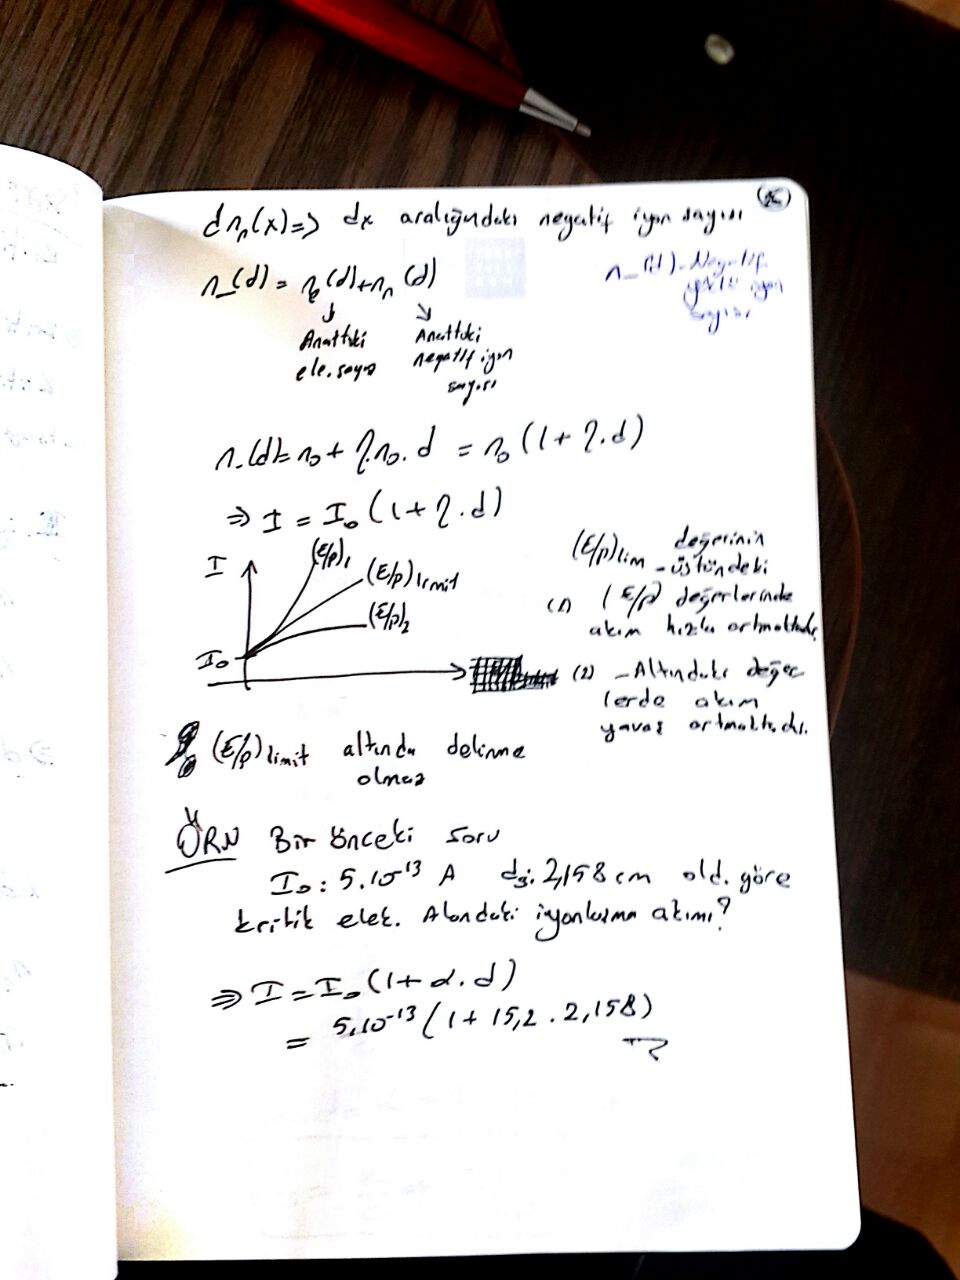 dn_n(x) => dx aralığındaki negatif iyon sayısı
n_(d) = n_e(d) + n_n(d)
n_(d) - Negatif yüklü iyon sayısı
Anottaki ele. sayısı
Anottaki negatif iyon sayısı
n_(d) = n_0 + η.n_0.d = n_0 (1 + η.d)
=> I = I_0 (1 + η.d)
I
(E/p)_1
(E/p)_limit
(E/p)_2
I_0
(E/p)_lim değerinin
- üstündeki
(1) (E/p) değerlerinde
akım hızla artmaktadır.
(2) - Altındaki değer
lerde akım
yavaş artmaktadır.
(E/p)_limit altında delinme
olmaz
ÖRN Bir önceki soru
I_0 : 5.10^-13 A d : 2,158 cm old. göre
kritik elek. Alandaki iyonlaşma akımı?
=> I = I_0 (1 + α.d)
= 5.10^-13 (1 + 15,2 . 2,158)